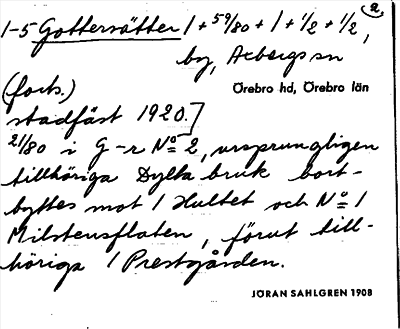 a
1-5 Gottersätter 1 + 59/80 + 1 + 1/2 + 1/2,
by, Axbergs sn
(forts.) Örebro hd, Örebro län
stadfäst 1920.]
21/80 i G-r No 2, ursprungligen
tillhöriga Dylta bruk bort-
byttes mot 1 Hultet och No 1
Milstensflaten, förut till-
höriga 1 Prestgården.
JÖRAN SAHLGREN 1908